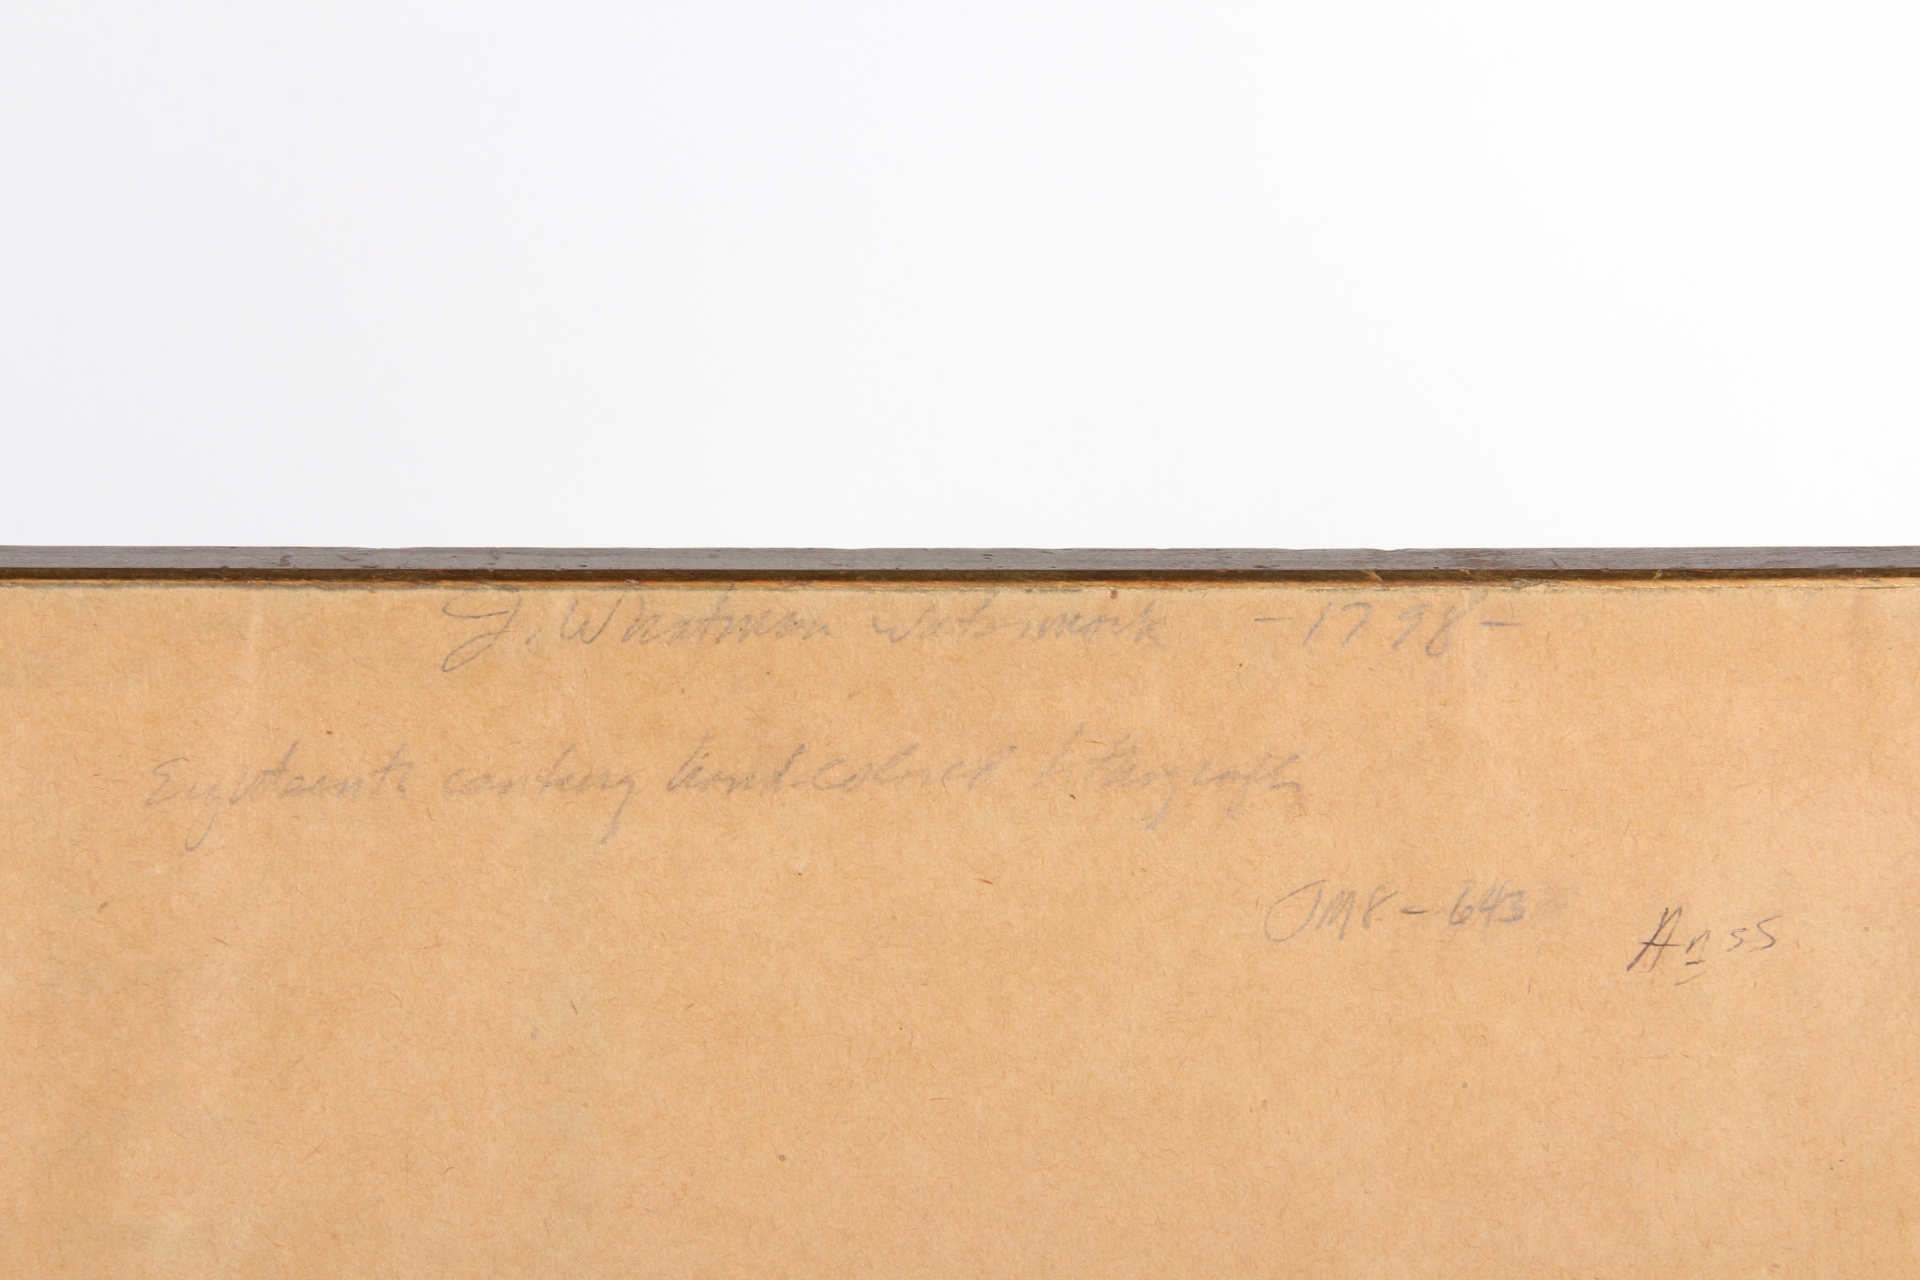 J. Whatman Watermark -1798-
Eighteenth century hand-colored lithograph
JM8-643
Anss